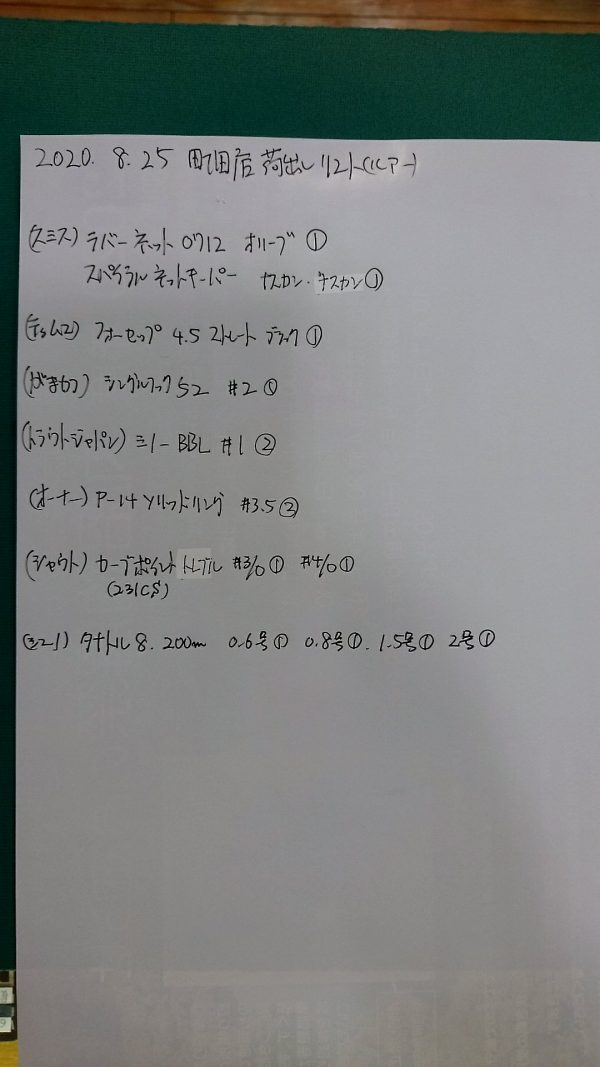 2020. 8.25 町田店 荷出しリスト(ルアー)
(スミス) ラバーネット 0712 オリーブ ①
スパイラルネットキーパー ナスカン・ナスカン ①
(ティムコ) フォーセップ 4.5 ストレート ブラック ①
(がまかつ) シングルフック 52 #2 ①
(トラウトジャパン) ミノーBBL #1 ②
(オーナー) P-14 ソリッドリング #3.5 ②
(シャウト) カーブポイントトレブル #3/0 ① #4/0 ①
(231CS)
タナトル8. 200m 0.6号① 0.8号①. 1.5号① 2号①